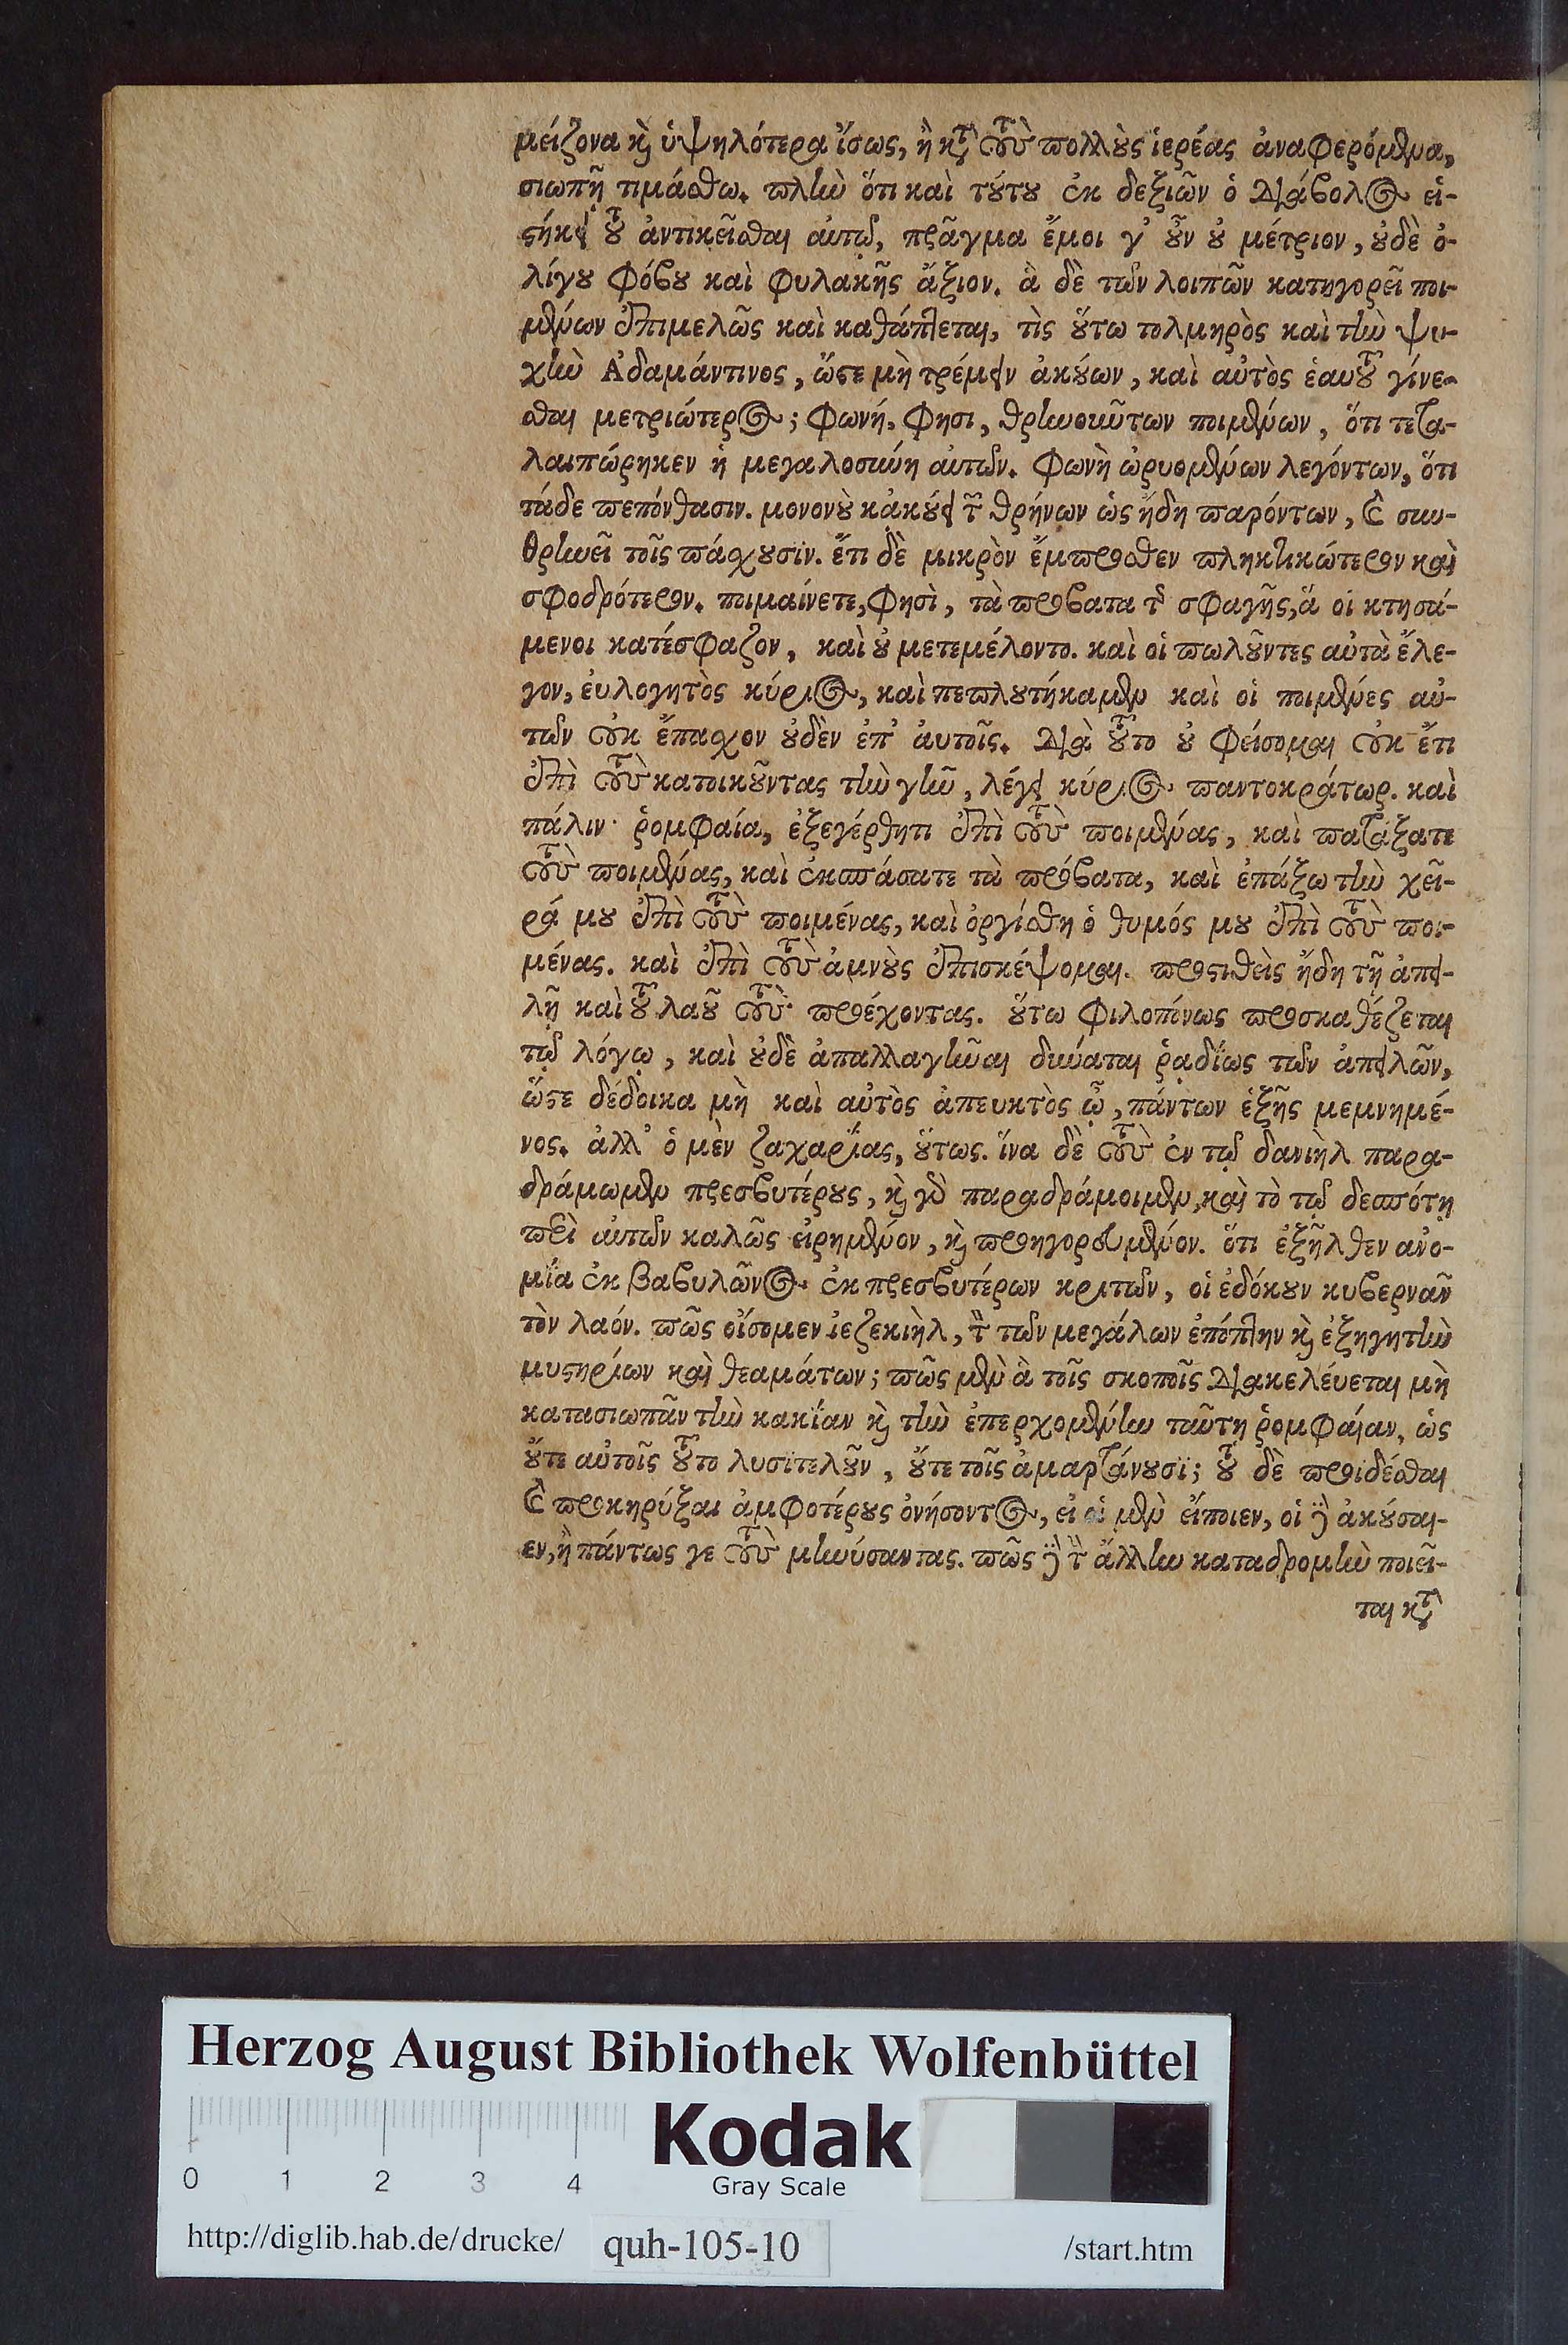 μείζονα καὶ ὑψηλότερα ἴσως, ἢ κατὰ τοὺς πολλοὺς ἱερέας ἀναφερόμενα,
σιωπῇ τιμάσθω. πλὴν ὅτι καὶ τούτου ἐκ δεξιῶν ὁ διάβολος εἱ-
στήκει τοῦ ἀντικεῖσθαι αὐτῷ, πρᾶγμα ἔμοι γ' οὖν οὐ μέτριον, οὐδὲ ὀ-
λίγου φόβου καὶ φυλακῆς ἄξιον. ἃ δὲ τῶν λοιπῶν κατηγορεῖ ποι-
μένων ἐπιμελῶς καὶ καθάπτεται, τὶς οὕτω τολμηρὸς καὶ τὴν ψυ-
χὴν Ἀδαμάντινος, ὥστε μὴ τρέμειν ἀκούων, καὶ αὐτὸς ἑαυτοῦ γίνε-
σθαι μετριώτερος; Φωνή, Φησι, θρηνούντων ποιμένων, ὅτι τετα-
λαιπώρηκεν ἡ μεγαλοσύνη αὐτῶν. Φωνὴ ὠρυομένων λεγόντων, ὅτι
τάδε πεπόνθασιν. μονονοὺ κἀκούει τῶν θρήνων ὡς ἤδη παρόντων, καὶ συν-
θρηνεῖ τοῖς πάσχουσϊν. ἔτι δὲ μικρὸν ἔμπροσθεν πληκτικώτερον καὶ
σφοδρότερον. ποιμαίνετε, Φησὶ, τὰ πρόβατα τῆς σφαγῆς, ἅ οἱ κτησά-
μενοι κατέσφαζον, καὶ οὐ μετεμέλοντο. καὶ οἱ πωλοῦντες αὐτὰ ἔλε-
γον, ἐυλογητὸς κύριος, καὶ πεπλουτήκαμεν καὶ οἱ ποιμένες αὐ-
τῶν οὐκ ἔπασχον οὐδὲν ἐπ' ἀυτοῖς. διὰ τοῦτο οὐ φείσομαι οὐκ ἔτι
ἐπὶ τοὺς κατοικοῦντας τὴν γῆν, λέγει κύριος παντοκράτωρ. καὶ
πάλιν· ῥομφαία, ἐξεγέρθητι ἐπὶ τοὺς ποιμένας, καὶ πατάξατε
τοὺς ποιμένας, καὶ ἐκσπάσατε τὰ πρόβατα, καὶ ἐπάξω τὴν χεῖ-
ρά μου ἐπὶ τοὺς ποιμένας, καὶ ὀργίσθη ὁ θυμός μου ἐπὶ τοὺς ποι-
μένας. καὶ ἐπὶ τοὺς ἀμνοὺς ἐπισκέψομαι. προστιθεὶς ἤδη τῇ ἀπει-
λῇ καὶ τοῦ λαοῦ τοὺς προέχοντας. οὕτω φιλοπόνως προσκαθέζεται
τῷ λόγῳ, καὶ οὐδὲ ἀπαλλαγῆναι δύναται ῥᾳδΐως τῶν ἀπειλῶν,
ὥστε δέδοικα μὴ καὶ αὐτὸς ἀπευκτὸς ᾦ, πάντων ἑξῆς μεμνημέ-
νος. ἀλλ' ὁ μὲν ζαχαρΐας, οὕτως. ἵνα δὲ τοὺς ἐν τῷ δανιὴλ παρα-
δράμωμεν πρεσβυτέρους, καὶ γὰρ παραδράμοιμεν, καὶ τὸ τῷ δεσπότῃ
περὶ αὐτῶν καλῶς εἰρημένον, καὶ προηγορευμένον. ὅτι ἐξῆλθεν ανο-
μΐα ἐκ βαβυλῶνος ἐκ πρεσβυτέρων κριτῶν, οἱ ἐδόκουν κυβερνᾶν
τὸν λαόν. πῶς οἴσομεν ἰεζεκιὴλ, τὸν τῶν μεγάλων ἐπόπτην καὶ ἐξηγητὴν
μυστηρίων καὶ θεαμάτων; πῶς μὲν ἃ τοῖς σκοποῖς διακελέυεται μὴ
κατασιωπᾶν τὴν κακΐαν καὶ τὴν ἐπερχομένην ταύτῃ ῥομφαίαν, ὡς
οὔτε αὐτοῖς τοῦτο λυσϊτελοῦν, οὔτε τοῖς ἁμαρτάνουσϊ; τοῦ δὲ προϊδέσθαι
καὶ προκηρύξαι ἀμφοτέρους ὀνήσοντος, εἰ οἱ μὲν εἴποιεν, οἱ δὲ ἀκούσαι-
εν, ἢ πάντως γε τοὺς μηνύσαντας. πῶς δὲ τὴν ἄλλην καταδρομὴν ποιεῖ-
ται κατὰ
Herzog August Bibliothek Wolfenbüttel
Kodak
Gray Scale
0 1 2 3 4
http://diglib.hab.de/drucke/ quh-105-10 /start.htm